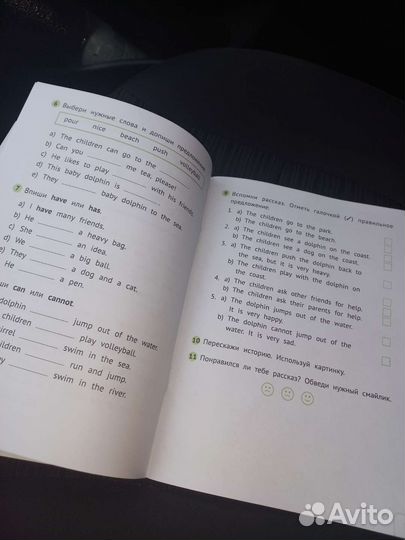 6 Выбери нужные слова и допиши предложения.
pour nice beach push volleyball
a) The children can go to the ________
b) Can you ________ me tea, please!
c) He likes to play ________ with his friends.
d) This baby dolphin is ________
e) They ________ baby dolphin to the sea.
7 Впиши have или has.
a) I have many friends.
b) He ________ a heavy bag.
c) She ________ an idea.
d) We ________ a big ball.
e) They ________ a dog and a cat.
He ________ a pen.
can или cannot.
dolphin ________ jump out of the water.
children ________ play volleyball.
________ swim in the sea.
________ run and jump.
________ swim in the river.
9 Вспомни рассказ. Отметь галочкой (✓) правильное
предложение.
1. a) The children go to the park.
b) The children go to the beach.
2. a) The children see a dolphin on the coast.
b) The children see a dog on the coast.
3. a) The children push the dolphin back to
the sea, but it is very heavy.
b) The children play with the dolphin on
the coast.
4. a) The children ask other friends for help.
b) The children ask their parents for help.
5. a) The dolphin jumps out of the water.
It is very happy.
b) The dolphin cannot jump out of the
water. It is very sad.
10 Перескажи историю. Используй картинку.
11 Понравился ли тебе рассказ? Обведи нужный смайлик.
Avito